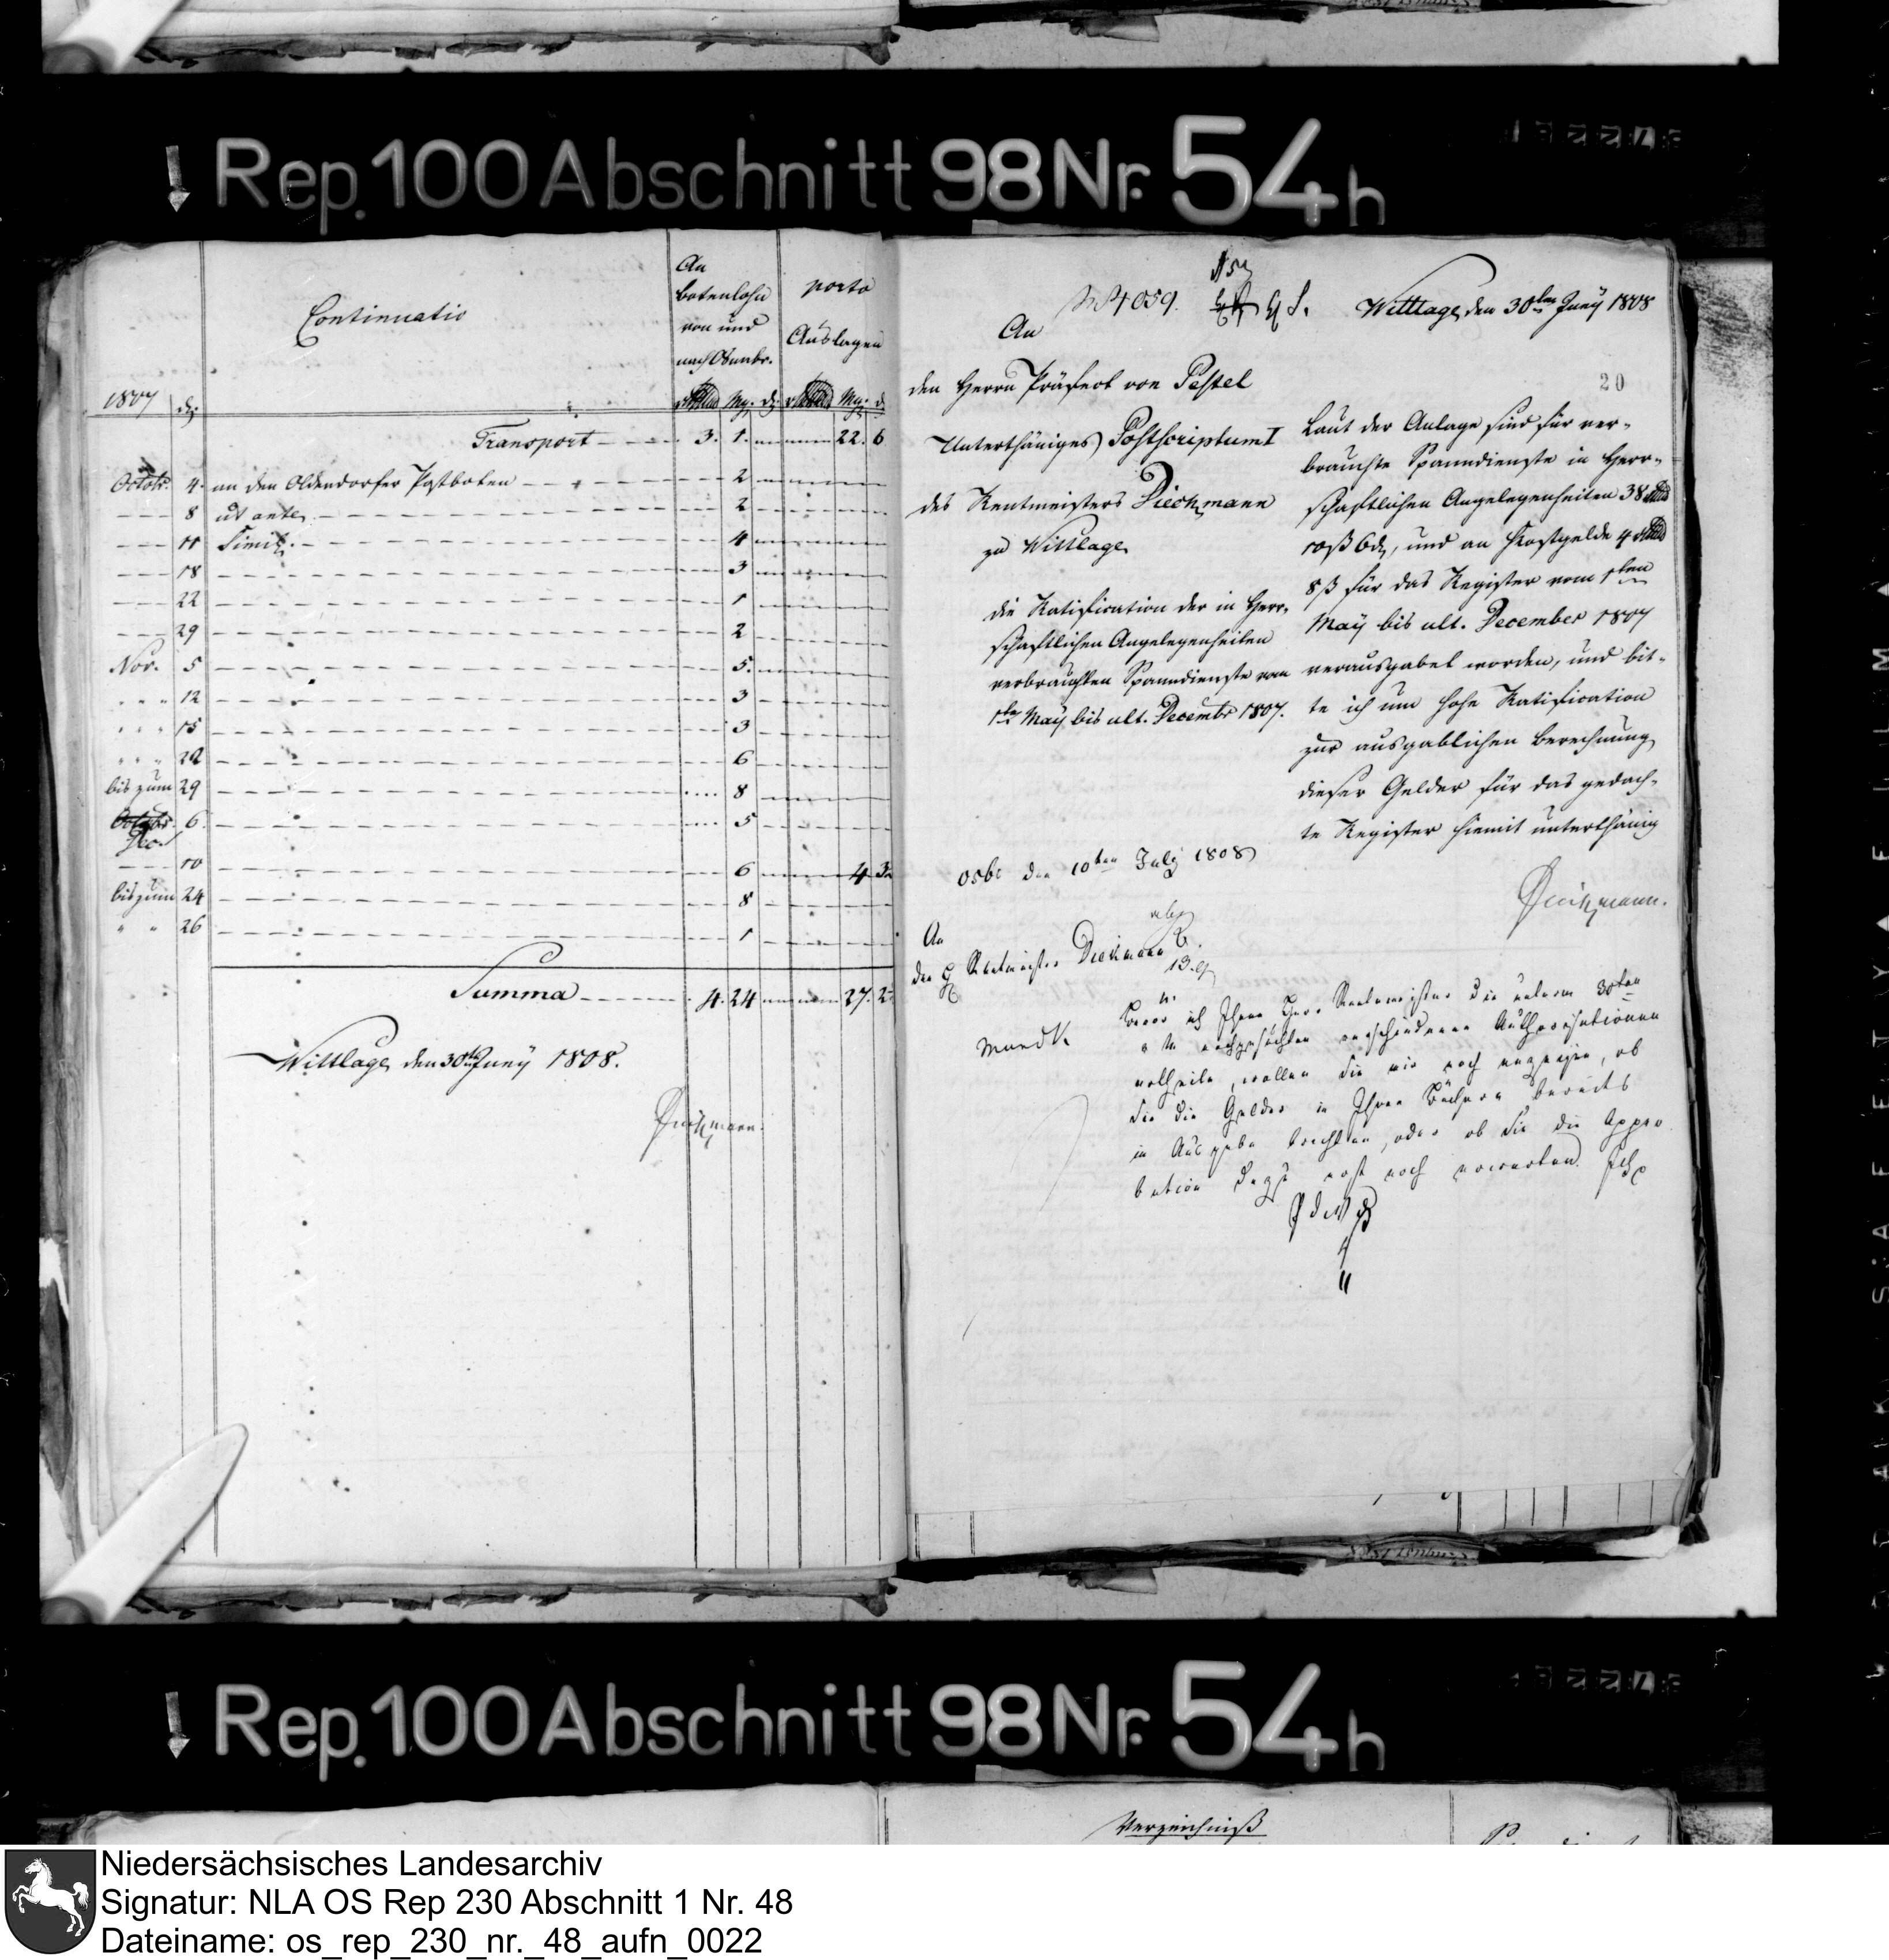 Rep. 100 Abschnitt 98 Nr. 54 h
Continuatio
An
botenlohn
von und
nach Osnabr.
porto
Auslagen
1807
Mg. d.
Mg. d.
Transport 3. 1. 22. 6
Octob. 4. an den Oldendorfer Postboten 2
8 ut ante 2
11 Simil. 4
18 3
22 1
29 2
Nov. 5 5.
12 3
15 3
22 6
bis zum 29 8
Dec. 6. 5
10 6 4 3
bis zum 24 8
" " 26 1
Summa 4. 24 27. 2
Wittlage den 30ten Juny 1808.
Dieckmann.
N 4059.
Wittlage, den 30ten Juny 1808
20
An
den Herrn Präfect von Pestel
Unterthäniges Postscriptum I
des Rentmeisters Dieckmann
zu Wittlage
die Ratification der in Herr-
schaftlichen Angelegenheiten
verbrauchten Spanndienste vom
1ten May bis ult. Decembr 1807.
Laut der Anlage sind für ver-
brauchte Spanndienste in Herr-
schaftlichen Angelegenheiten 38
10 ß 6 d, und an Kostgelde 4
8 ß für das Register vom 1ten
May bis ult. December 1807
verausgabet worden, und bit-
te ich um hohe Ratification
zur ausgablichen Berechnung
dieser Gelder für das gedach-
te Register hiemit unterthänig
Dieckmann.
Osbr den 10ten July 1808
An
den H Rentmeister Dieckmann
13.
Bevor ich Ihnen Herr Rentmeister die unterm 30ten
nachgesuchten verschiedenen Authorisationen
ertheile, wollen Sie mir noch anzeigen, ob
Sie die Gelder in Ihren Büchern bereits
in Ausgabe brachten, oder ob Sie die Appro
bation dazu erst noch erwarten.
Rep. 100 Abschnitt 98 Nr. 54 h
Verzeichniß
Niedersächsisches Landesarchiv
Signatur: NLA OS Rep 230 Abschnitt 1 Nr. 48
Dateiname: os_rep_230_nr._48_aufn_0022